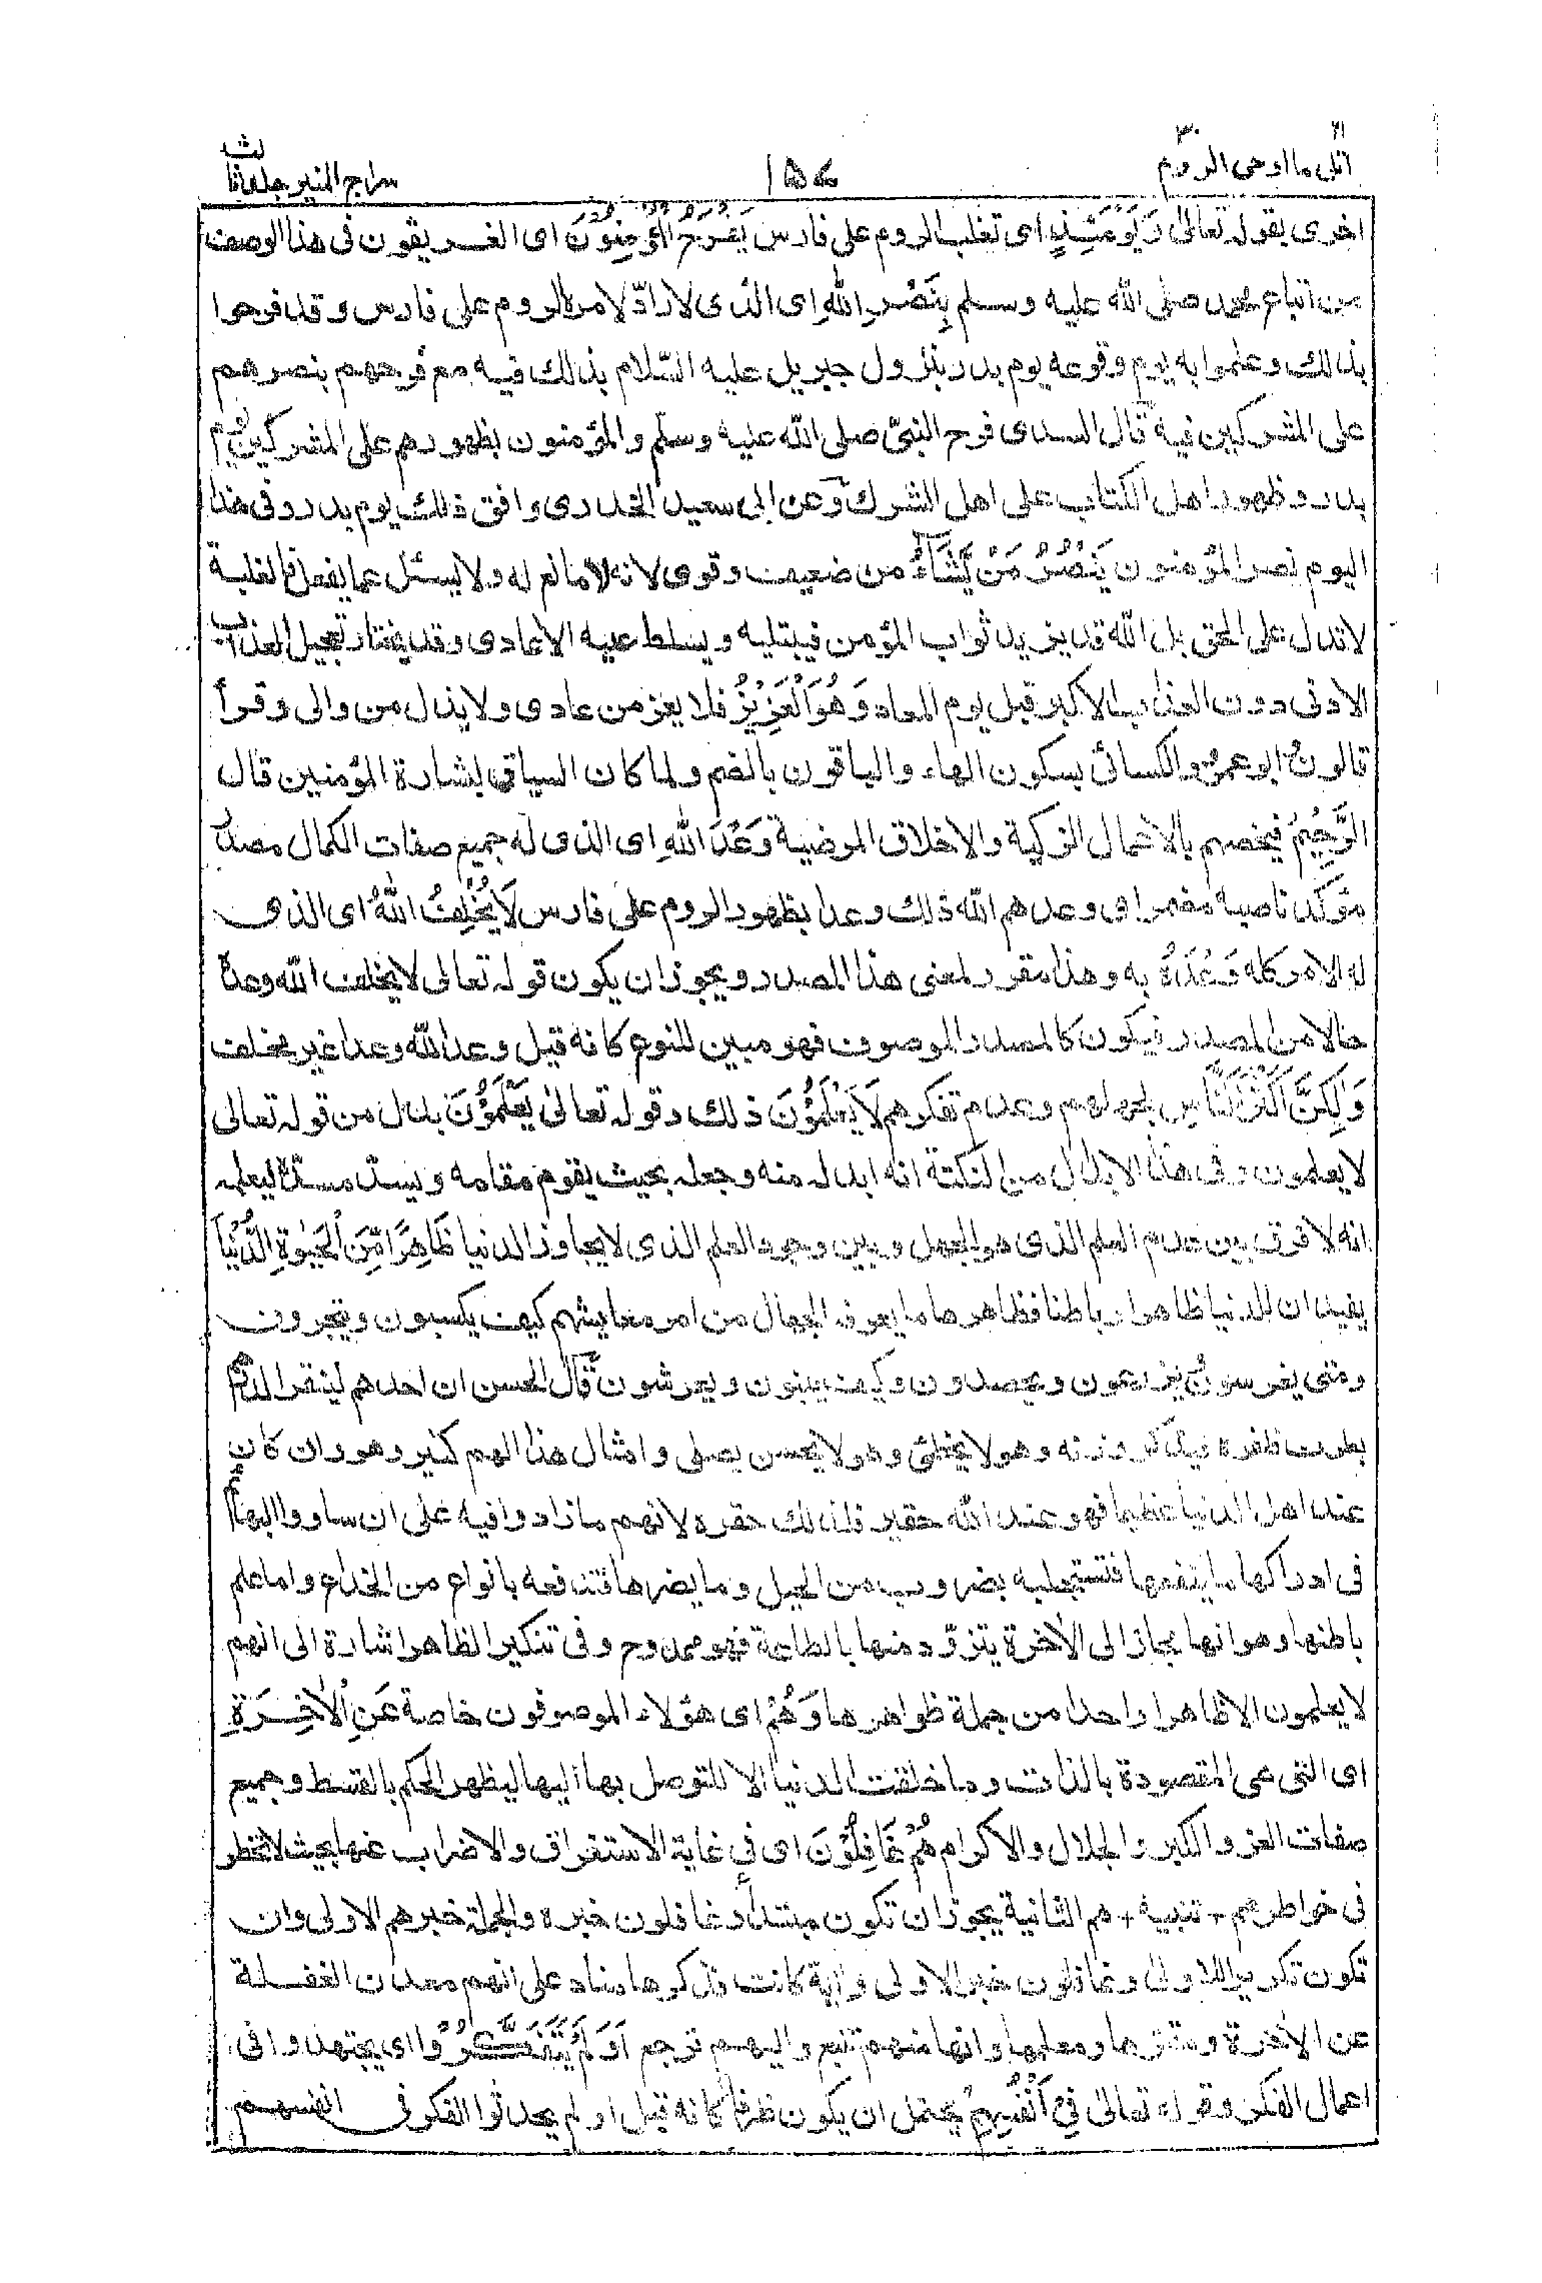 اتل ما اوحی ۲۱ الروم ۳۰
۱۵۷
سراج المنیر جلد ثالث
اخری بقوله تعالیٰ وَیَوْمَئِذٍ ای تغلب الروم علی فارس یَفْرَحُ الْمُؤْمِنُوْنَ ای الغریقون فی هذا الوصف
من اتباع محمد صلی الله علیه وسلم بِنَصْرِ اللهِ ای الذی لا رادّ لامره الروم علی فارس وقد فرحوا
بذالك وعلموا به یوم وقوعه یوم بدر بنزول جبریل علیه السّلام بذالك فیه مع فرحهم بنصرهم
علی المشرکین فیه قال السدی فرح النبیّ صلی الله علیه وسلّم والمؤمنون بظهورهم علی المشرکین یوم
بدر وظهور اهل الکتاب علی اهل الشرك وعن ابی سعید الخدری وافق ذلك یوم بدر وفی هذا
الیوم نصر المؤمنون یَنْصُرُ مَنْ یَّشَآءُ من ضعیف وقوی لانه لا مانع له ولا یسئل عما یفعل فالغلبة
لا تدل علی الحق بل الله قد یزید ثواب المؤمن فیبتلیه ویسلط علیه الاعادی وقد یختار تعجیل العذاب
الادنی دون العذاب الاکبر قبل یوم المعاد وَهُوَ الْعَزِیْزُ فلا یعز من عادی ولا یذل من والی وقرأ
قالون وابو عمرو والکسائی بسکون الهاء والباقون بالضم ولما کان السیاق لبشارة المؤمنین قال
الرَّحِیْمُ فیخصهم بالاعمال الزکیة والاخلاق المرضیة وَعْدَ اللهِ ای الذی له جمیع صفات الکمال مصدر
مؤکّد ناصبه مضمر ای وعدهم الله ذلك وعدا بظهور الروم علی فارس لَا یُخْلِفُ اللهُ ای الذی
له الامر کله وَعْدَهٗ به وهذا مقرر لمعنی هذا المصدر ویجوز ان یکون قوله تعالی لا یخلف الله وعده
حالا من المصدر فیکون کالمصدر الموصوف فهو مبین للنوع کانه قیل وعد الله وعدا غیر مخلف
وَلٰکِنَّ اَکْثَرَ النَّاسِ لجهلهم وعدم تفکرهم لَا یَعْلَمُوْنَ ذلك وقوله تعالیٰ یَعْلَمُوْنَ بدل من قوله تعالی
لا یعلمون وفی هذا الابدال من النکتة انه ابدله منه وجعله بحیث یقوم مقامه ویسدّ مسدّه لیعلمك
انه لا فرق بین عدم العلم الذی هو الجهل وبین وجود العلم الذی لا یجاوز الدنیا ظَاهِرًا مِّنَ الْحَیٰوةِ الدُّنْیَا
یفید ان للدنیا ظاهرا وباطنا فظاهرها ما یعرفه الجهال من امر معایشهم کیف یکسبون ویتجرون
ومتی یغرسون ویزرعون ویحصدون وکیف یبنون ویعرشون قال الحسن ان احدهم لینقر الدرهم
بطرف ظفره فیذکر وزنه وهو لا یخطئ وهو لا یحسن یصلی وامثال هذا لهم کثیر وهو وان کان
عند اهل الدنیا عظیما فهو عند الله حقیر فلذلك حقره لانهم ما زادوا فیه علی ان ساووا البهائم
فی ادراکها ما ینفعها فتستجلبه بضروب من الحیل وما یضرها فتدفعه بانواع من الخداع واما علم
باطنها وهو انها مجاز الی الآخرة یتزوّد منها بالطاعة فهو ممدوح وفی تنکیر الظاهر اشارة الی انهم
لا یعلمون الا ظاهرا واحدا من جملة ظواهرها وَهُمْ ای هؤلاء الموصوفون خاصة عَنِ الْاٰخِرَةِ
ای التی هی المقصودة بالذات وما خلقت الدنیا الا للتوصل بها الیها لیظهر الحکم بالقسط وجمیع
صفات العز والکبر والجلال والاکرام هُمْ غَافِلُوْنَ ای فی غایة الاستغراق والاضراب عنها بحیث لا تخطر
فی خواطرهم + تنبیه + هم الثانیة یجوز ان تکون مبتدأ وغافلون خبره والجملة خبر هم الاولی وان
تکون تکریرا للاولی وغافلون خبر الاولی وایة کانت فذکرها مناد علی انهم معدن الغفلة
عن الآخرة ومقرها ومعلمها وانها منهم تنبع والیهم ترجع اَوَلَمْ یَتَفَکَّرُوْا ای یجتهدوا فی
اعمال الفکر وقوله تعالیٰ فِیْ اَنْفُسِهِمْ یحتمل ان یکون ظرفا کانه قیل اولم یحدثوا الفکر فی انفسهم